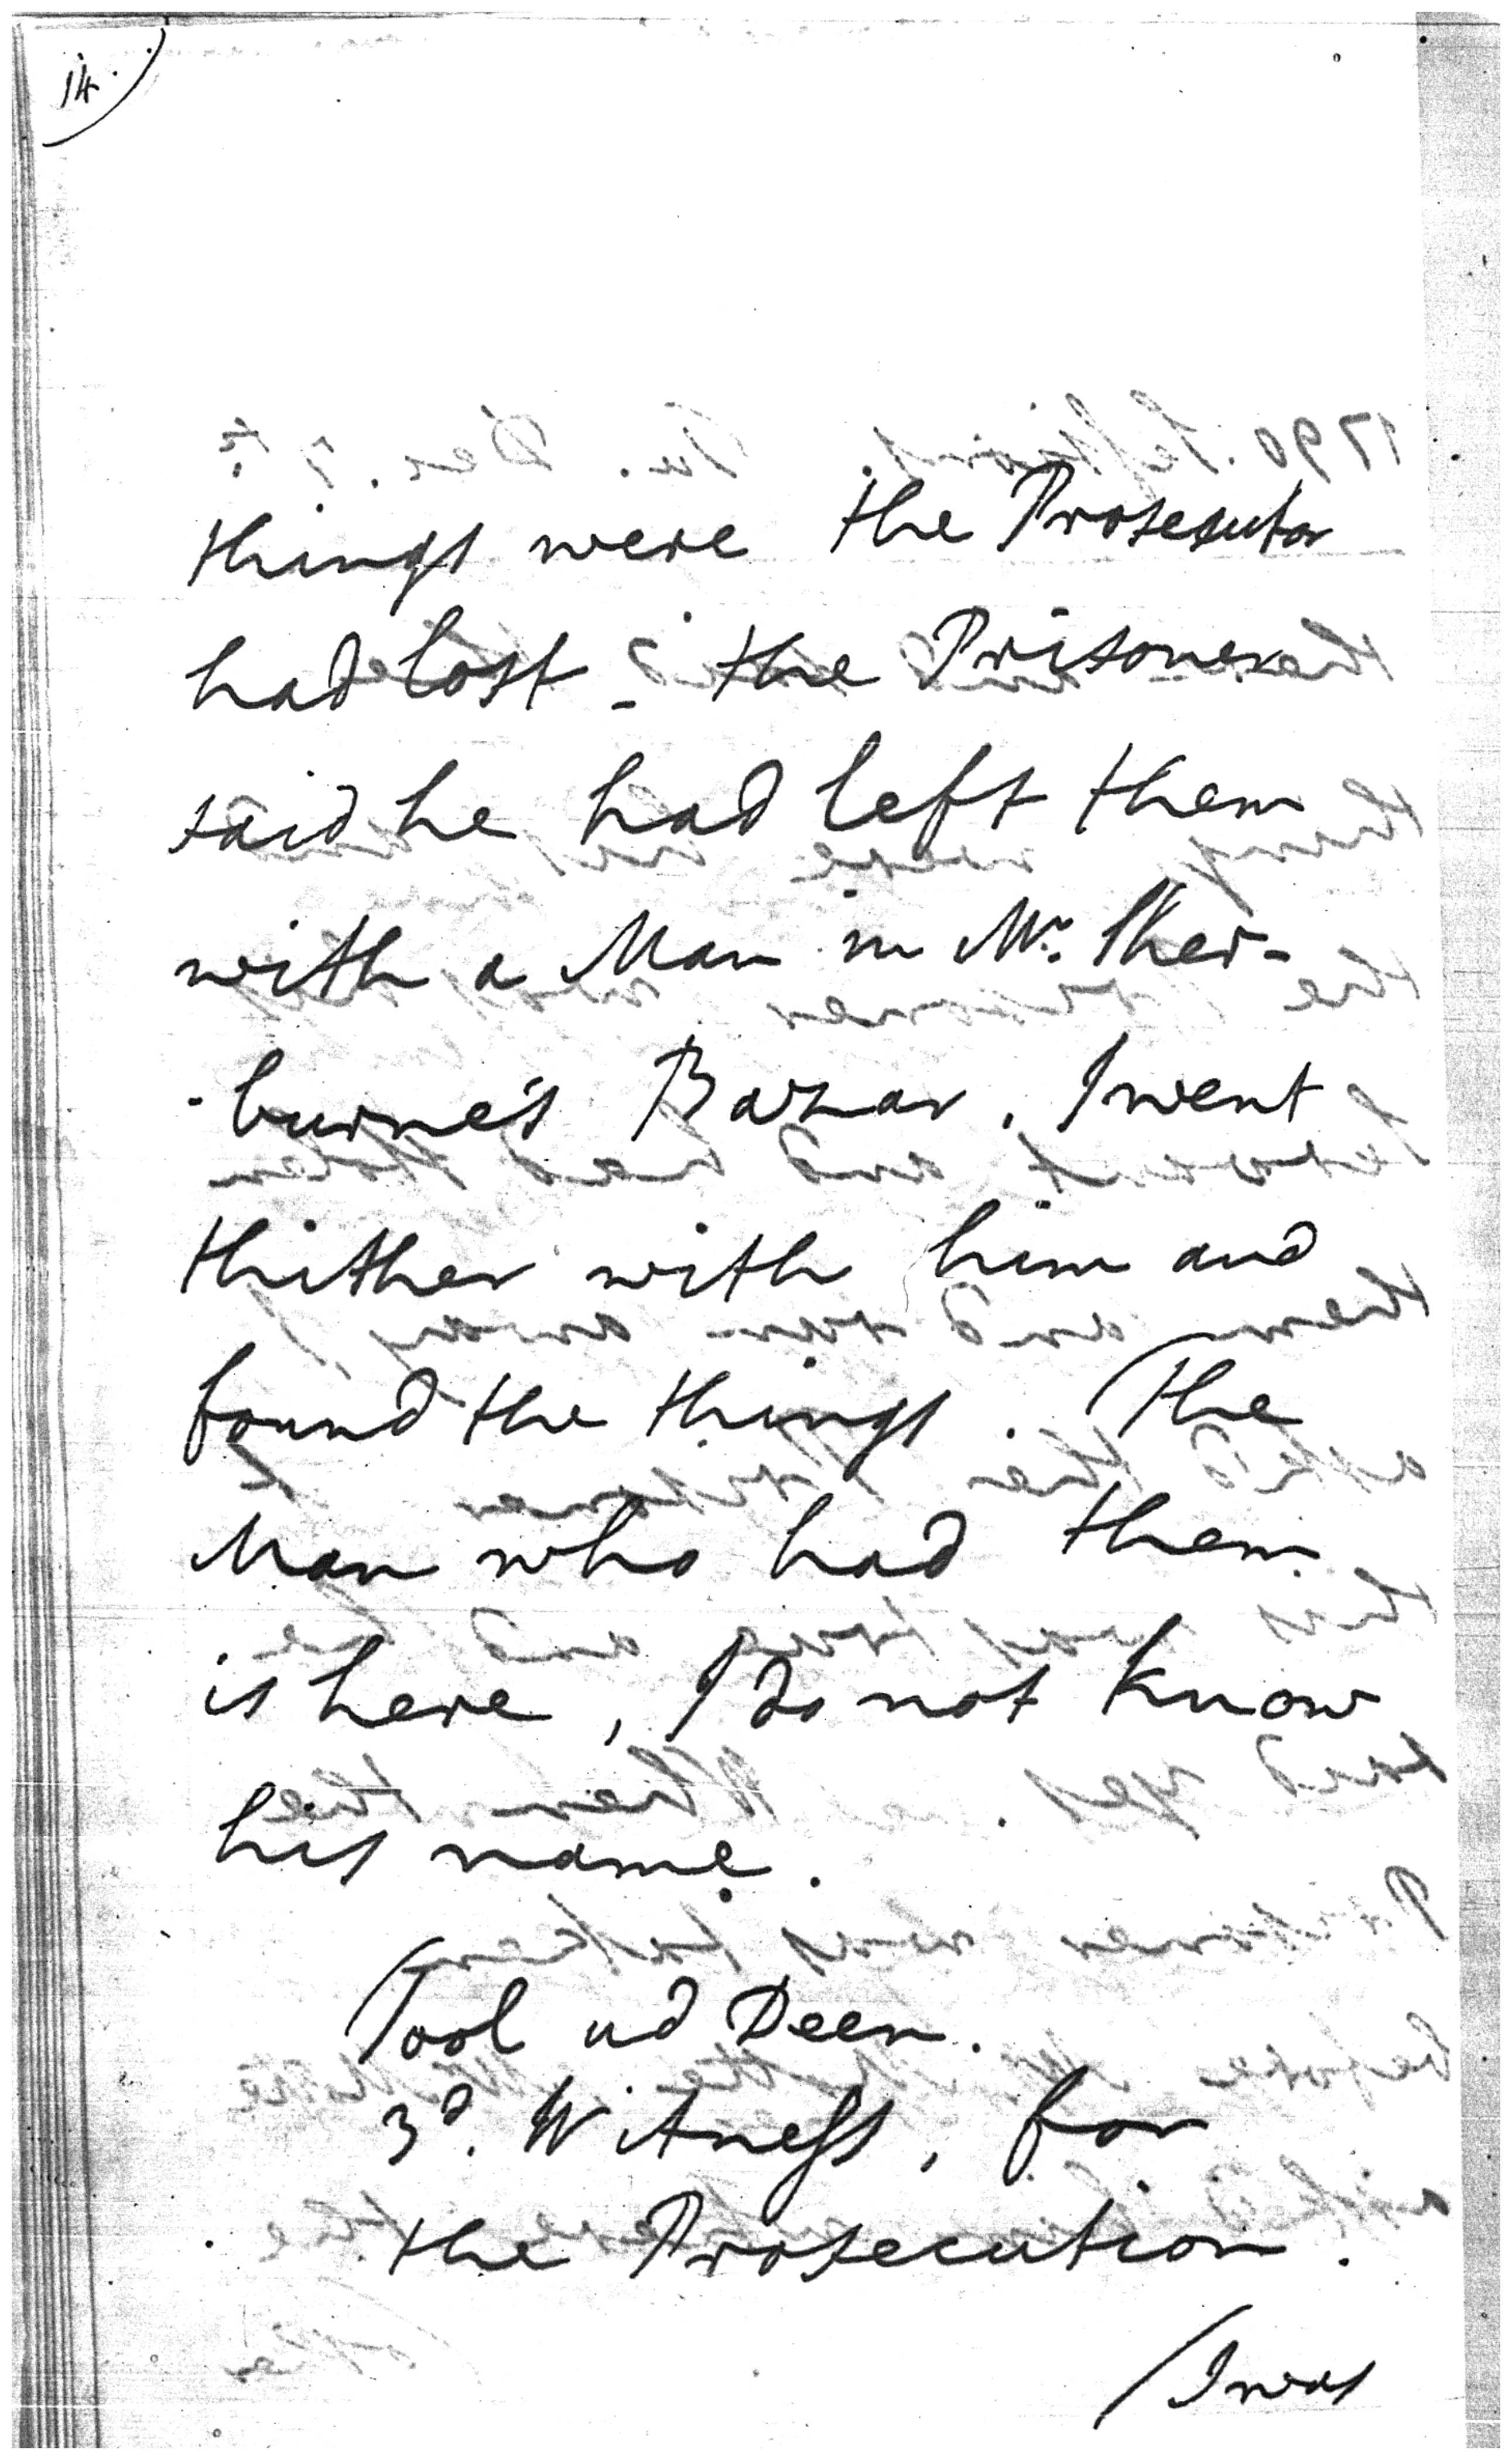 14.
things were the Prosecutor
had lost - the Prisoner
said he had left them
with a Man in Mr. Sher-
-burne's Bazar. I went
thither with him and
found the things. The
Man who had them
is here, I do not know
his name.
Tool ud Deen.
3d. Witness, for
the Prosecution.
/I was